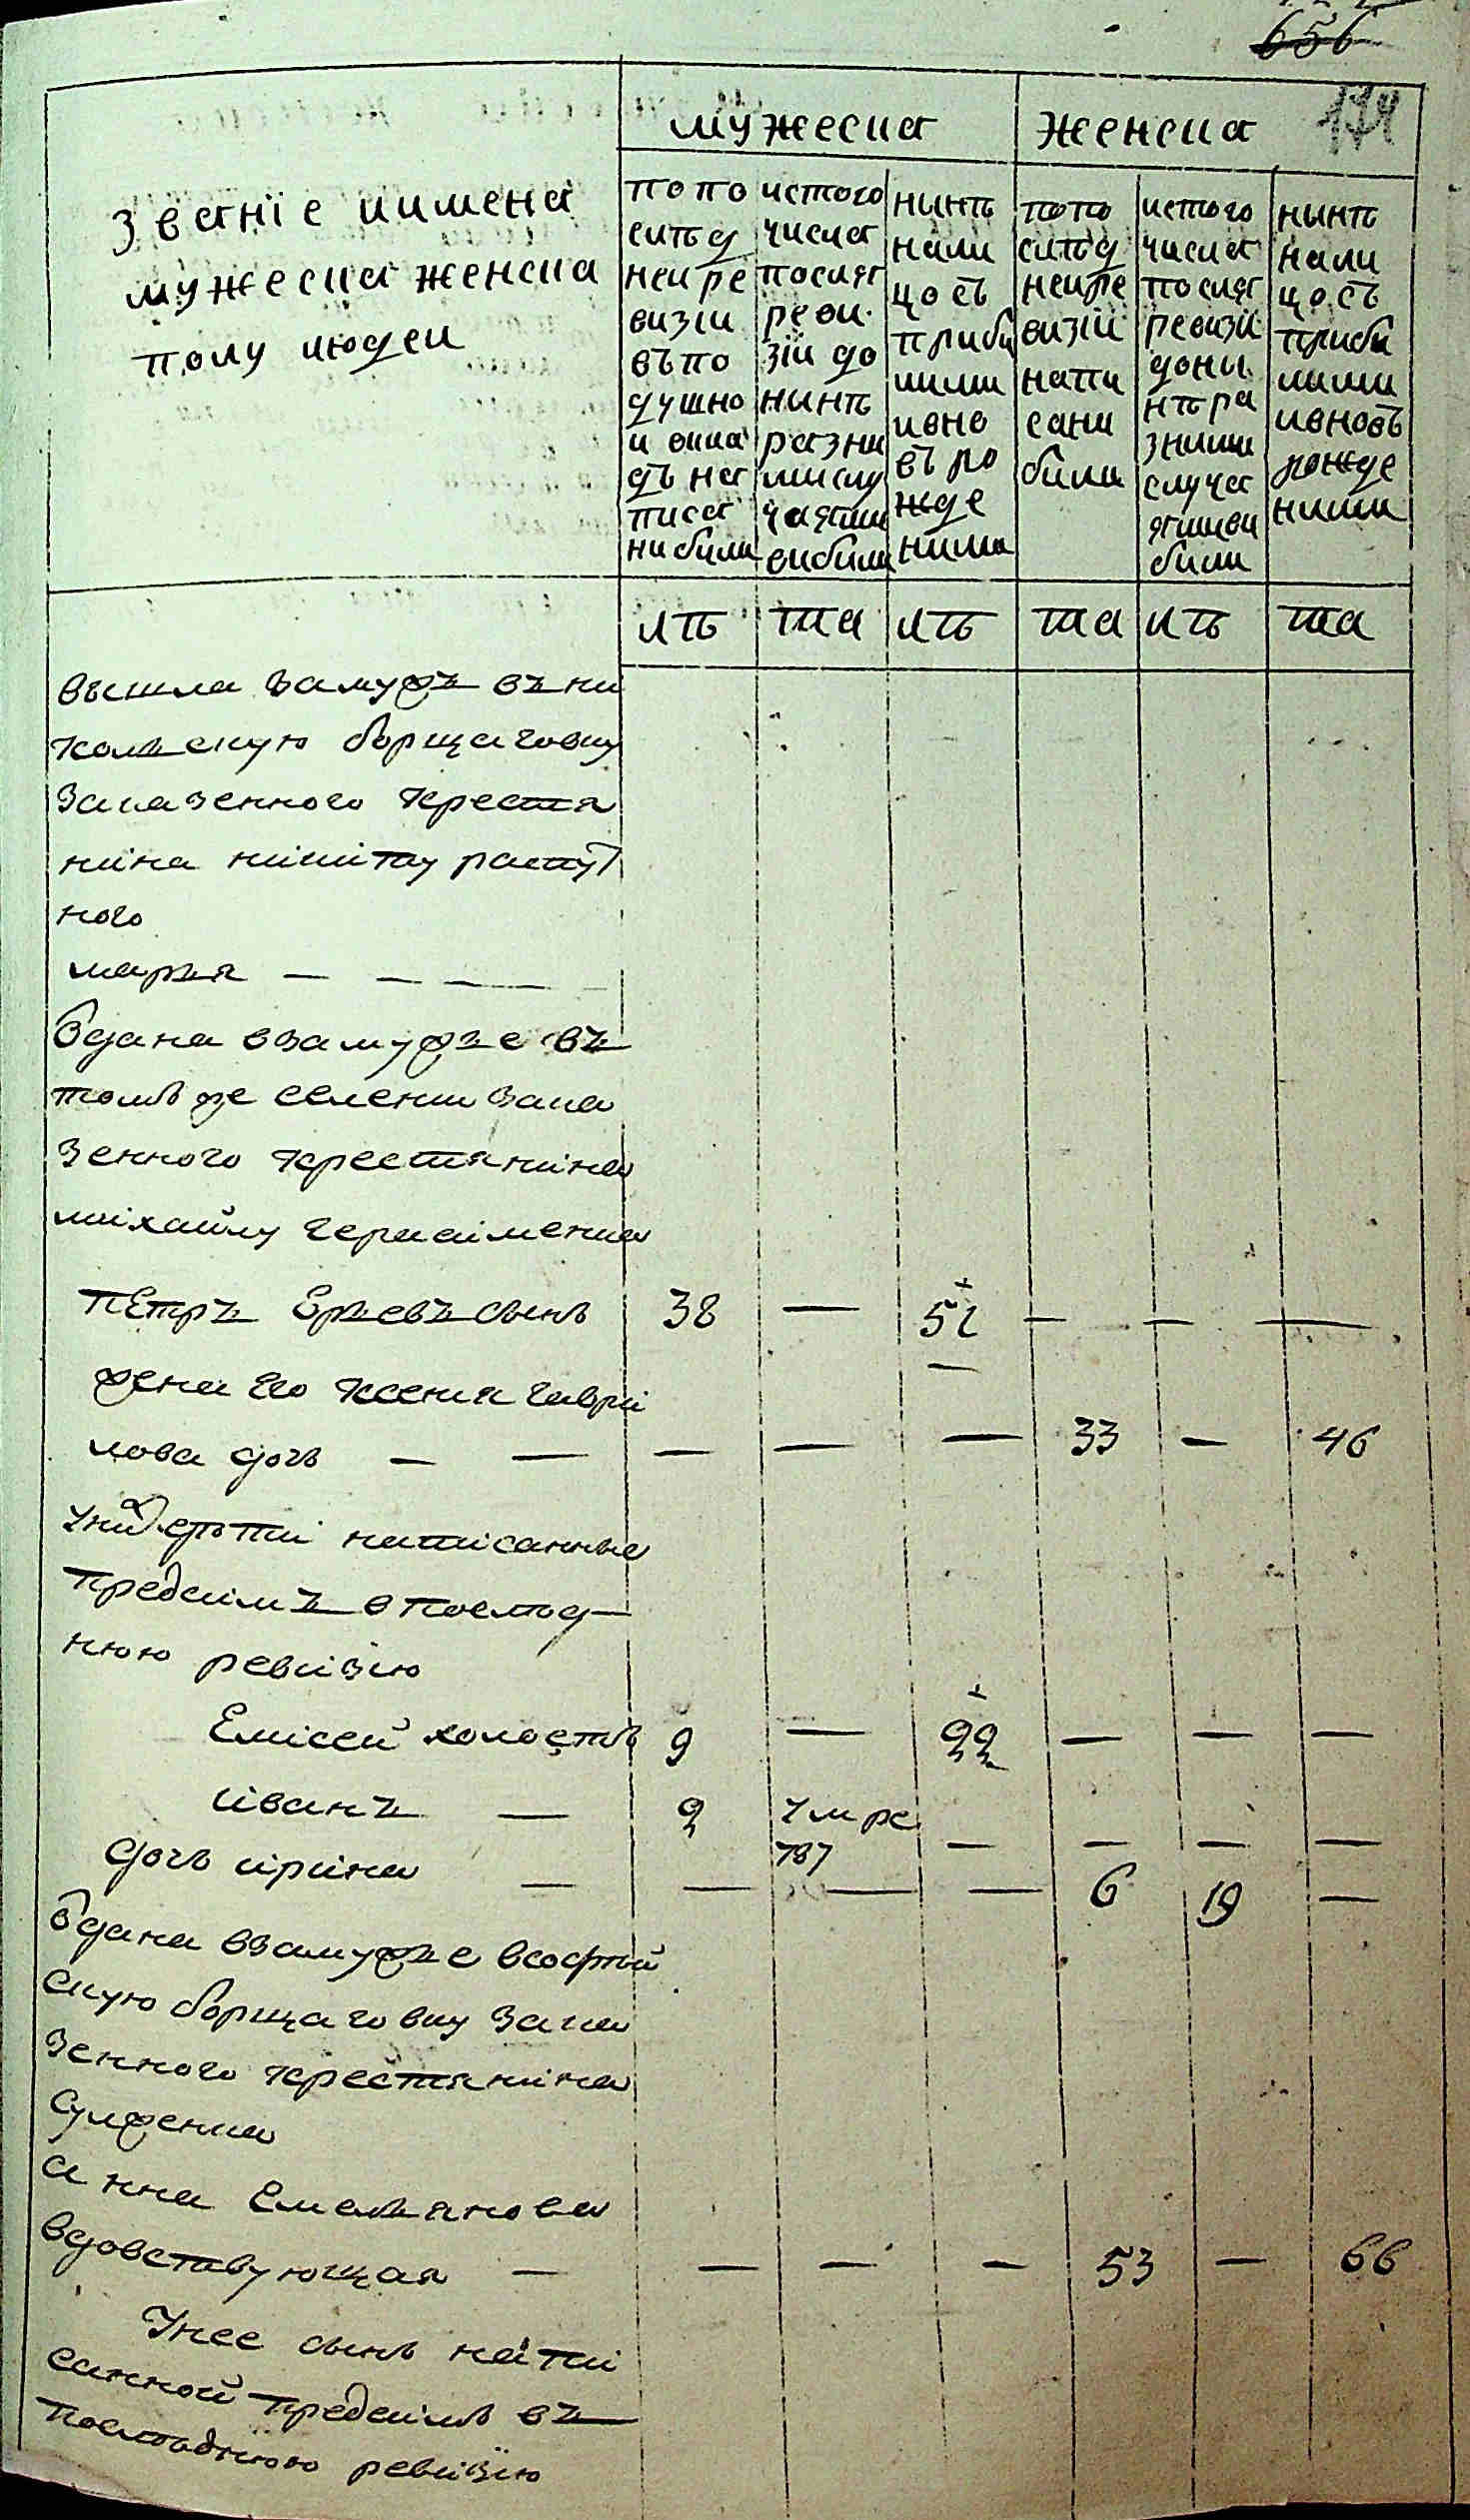 656
174
мужеска
женска
званіе иимена
мужеска женска
полу людеи
попо
слѣд
неире
визіи
въпо
душно
й окла
дъ на
писа
ни были
истого
числа
послѣ
реви
зіи до
нынѣ
разны
ми слу
чаями
выбыли
нынѣ
нали
цо съ
прибы
лими
ивно
въ ро
жде
ними
попо
слѣд
неире
визіи
напи
сани
были
истого
числа
послѣ
ревизіи
доны
нѣ ра
зними
случа
ями вы
были
нынѣ
нали
цо съ
прибы
лими
ивновъ
рожде
ними
лѣ та лѣ та лѣ та
вышла замужъ въ ни
кольскую борщаговку
заказенного крестя
нина никиту
ного
марья — — — —
ѿдана взамужъе въ
томъ же селении зака
зенного крестянина
михайлу герасименка
петръ юрьевъ сынъ 38 — 51 — — —
жена его ксения гаври
лова дочь — — — — — 33 — 46
унихъ дѣти написанные
предсимъ впослѣд
нюю ревизию
Елисей холостъ 9 — 22 — — —
иванъ — 9 умре 787 — — — —
дочь ирина — — — — 6 19 —
ѿдана взамужъе всофѣй
скую борщаговку зака
зенного крестянина
Сулженка
анна Емельянова
вдовствующая — — — — 53 — 66
Унее сынъ напи
санной предсимъ въ
послѣднюю ревизію